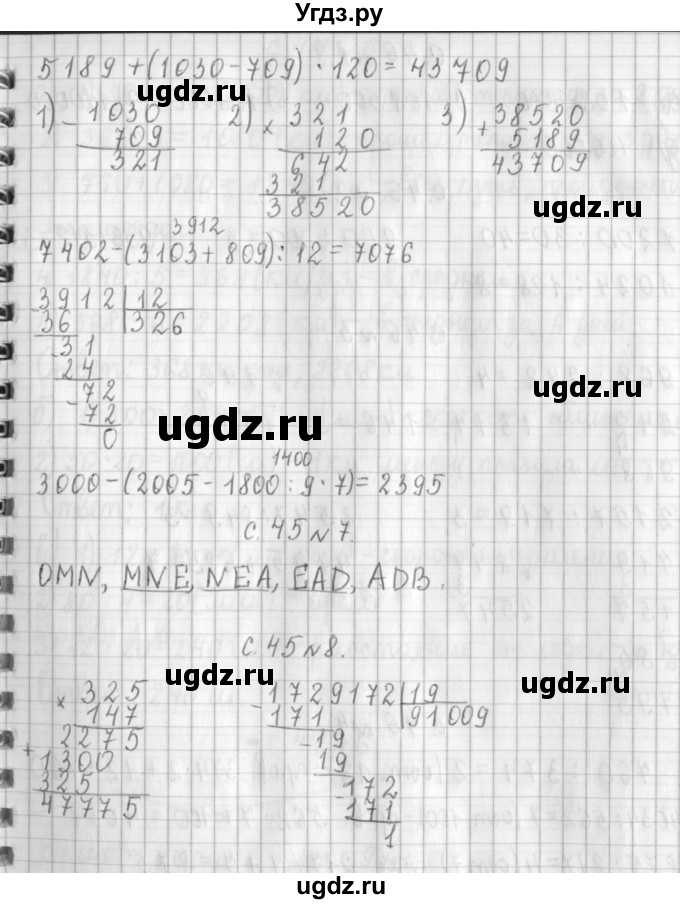 Угдз.ру
5189+(1030-709)·120=43709
1) 1030 2) 321 3) 38520
- 709 × 120 + 5189
321 642 43709
321
38520
3912
7402-(3103+809):12=7076
3912|12
36 326
31
24
-72
72
0
1400
3000-(2005-1800:9·7)=2395
с.45 №7.
OMN, MNE, NEA, EAD, ADB.
с.45 №8.
× 325 -1729172|19
147 171 91009
2275 -19
+1300 19
325 -172
47775 171
1
ugdz.ru
ugdz.ru
ugdz.ru
ugdz.ru
ugdz.ru
ugdz.ru
ugdz.ru